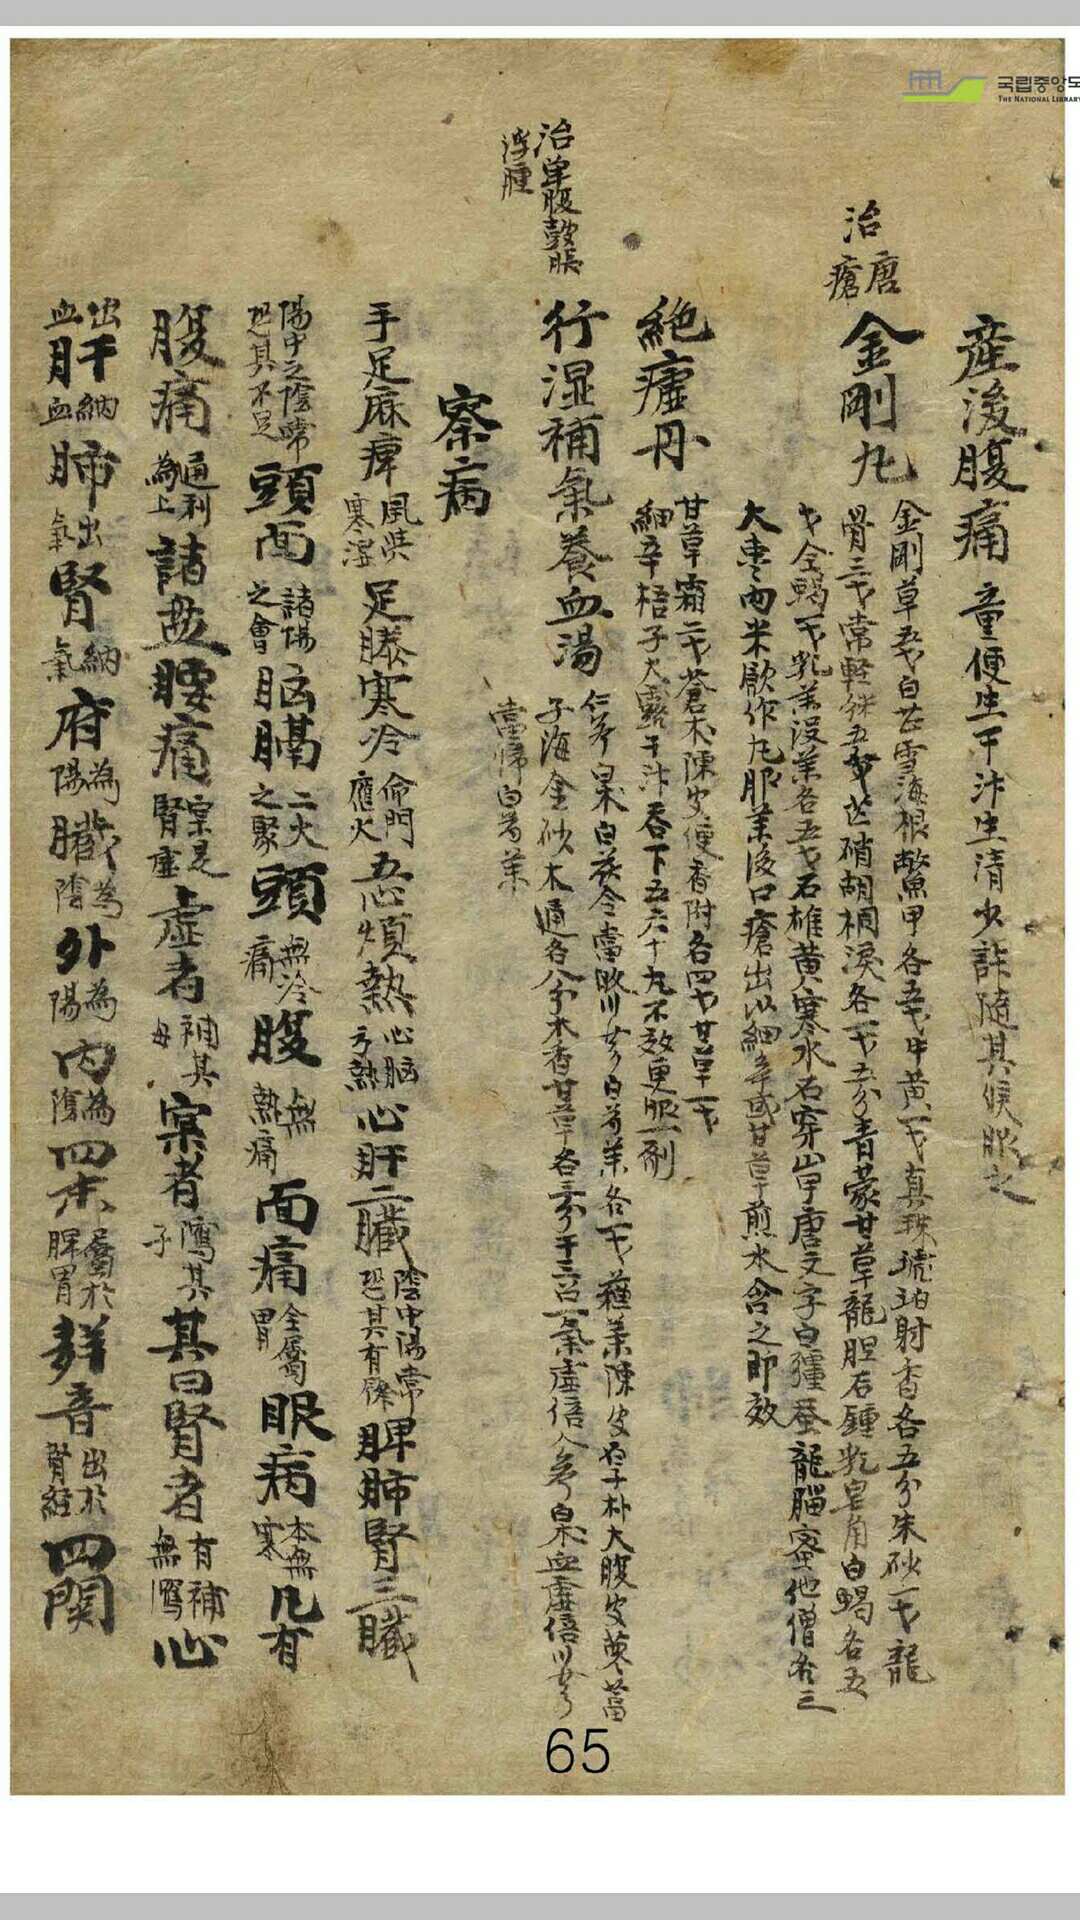 국립중앙도
THE NATIONAL LIBRARY
産後腹痛 童便生干汁生清少許随其候服之
治唐瘡
金剛丸
金剛草 白芷雪海根鱉甲各五戈牛黃一戈真珠琥珀射香各五分朱砂一戈龍
骨三戈常輕粉五 芒硝胡桐淚各一戈五分青蒙甘草龍胆石鍾乳皂角白蝎各五
戈全蝎一戈乳茱没茱各五戈石雄黄寒水石穿山甲唐文字白殭蚕龍腦蜜他僧各三
大枣肉米 作丸服茱後口瘡出以細辛或甘草煎水含之即效
絶瘧丹
甘草霜二戈蒼术陳皮便香附各四戈甘草一戈
細辛梧子大露干汁吞下五六十丸不效更服一剤
治单腹鼓脹
浮腫
行湿補氣養血湯
仁参白术白茯令當 川芎白芍茱各一戈蘓茱陳皮 朴大腹皮
子海金砂木通各八分木香甘草各三分干三召一氣虚倍人参白术血虚倍川芎
當帰白芍茱
察病
手足麻痺 風 寒湿 足膝寒冷 命門應火 五心煩熱 心脳 熱 心肝二臓 陰中陽常恐其有 脾肺腎三臓
陽中之陰常恐其不足 頭面 諸陽之會 脳膈 二火之聚 頭 無冷痛 腹 無熱痛 面痛 全属胃 眼病 本無寒 凡有
腹痛 通利為上 諸 腰痛 宗是腎虚 虚者 補其母 宲者 瀉其子 其曰腎者 有補無瀉 心
出血 肝 納血 肺 出氣 腎 納氣 府 為陽 臓 為陰 外 為陽 内 為陰 四末 属於脾胃 群音 出於腎經 四関
65